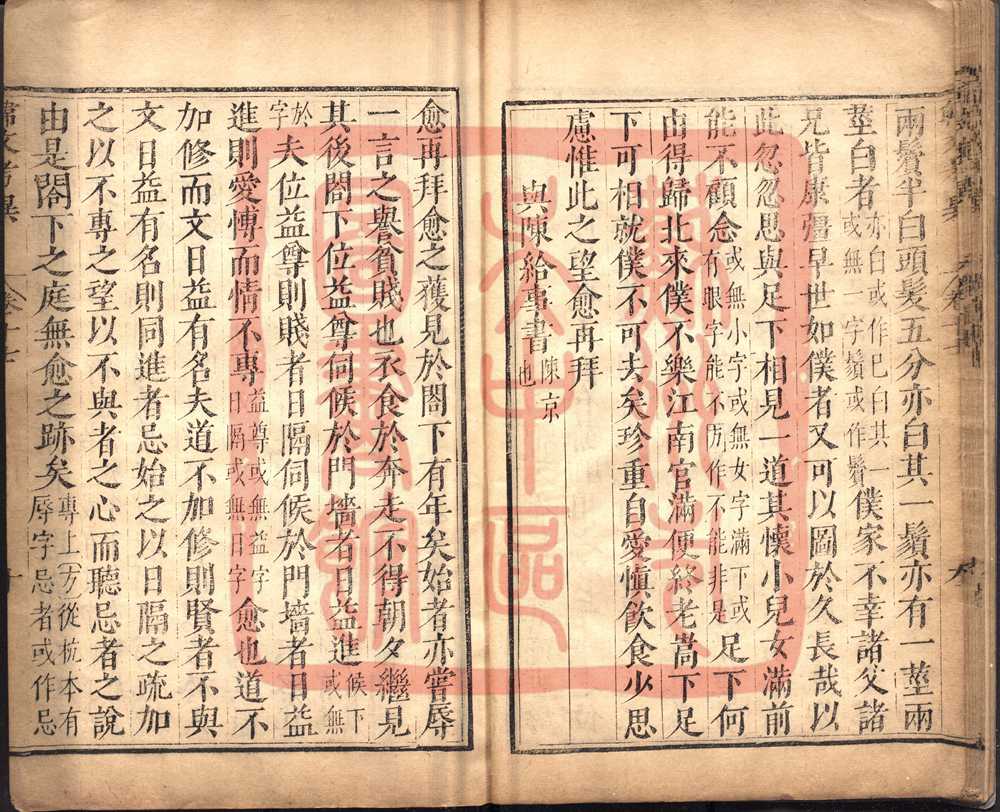 兩鬢半白頭髮五分亦白其一鬚亦有一莖兩
莖白者亦白或作巳白其一或無一字鬚或作鬢僕家不幸諸父諸
兄皆康彊早世如僕者又可以圖於久長哉以
此忽忽思與足下相見一道其懷小兒女滿前
能不顧念或無小字或無女字滿下或有眼字能不方作不能非是足下何
由得歸北來僕不樂江南官滿便終老嵩下足
下可相就僕不可去矣珍重自愛慎飲食少思
慮惟此之望愈再拜
與陳給事書陳京也
愈再拜愈之獲見於閤下有年矣始者亦嘗辱
一言之譽貧賤也衣食於奔走不得朝夕繼見
其後閤下位益尊伺候於門墻者日益進候下或無
於字夫位益尊則賤者日隔伺候於門墻者日益
進則愛愽而情不專益尊或無益字日隔或無日字愈也道不
加修而文日益有名夫道不加修則賢者不與
文日益有名則同進者忌始之以日隔之疏加
之以不專之望以不與者之心而聽忌者之說
由是閤下之庭無愈之跡矣專上方從杭本有辱字忌者或作忌
韓文考異